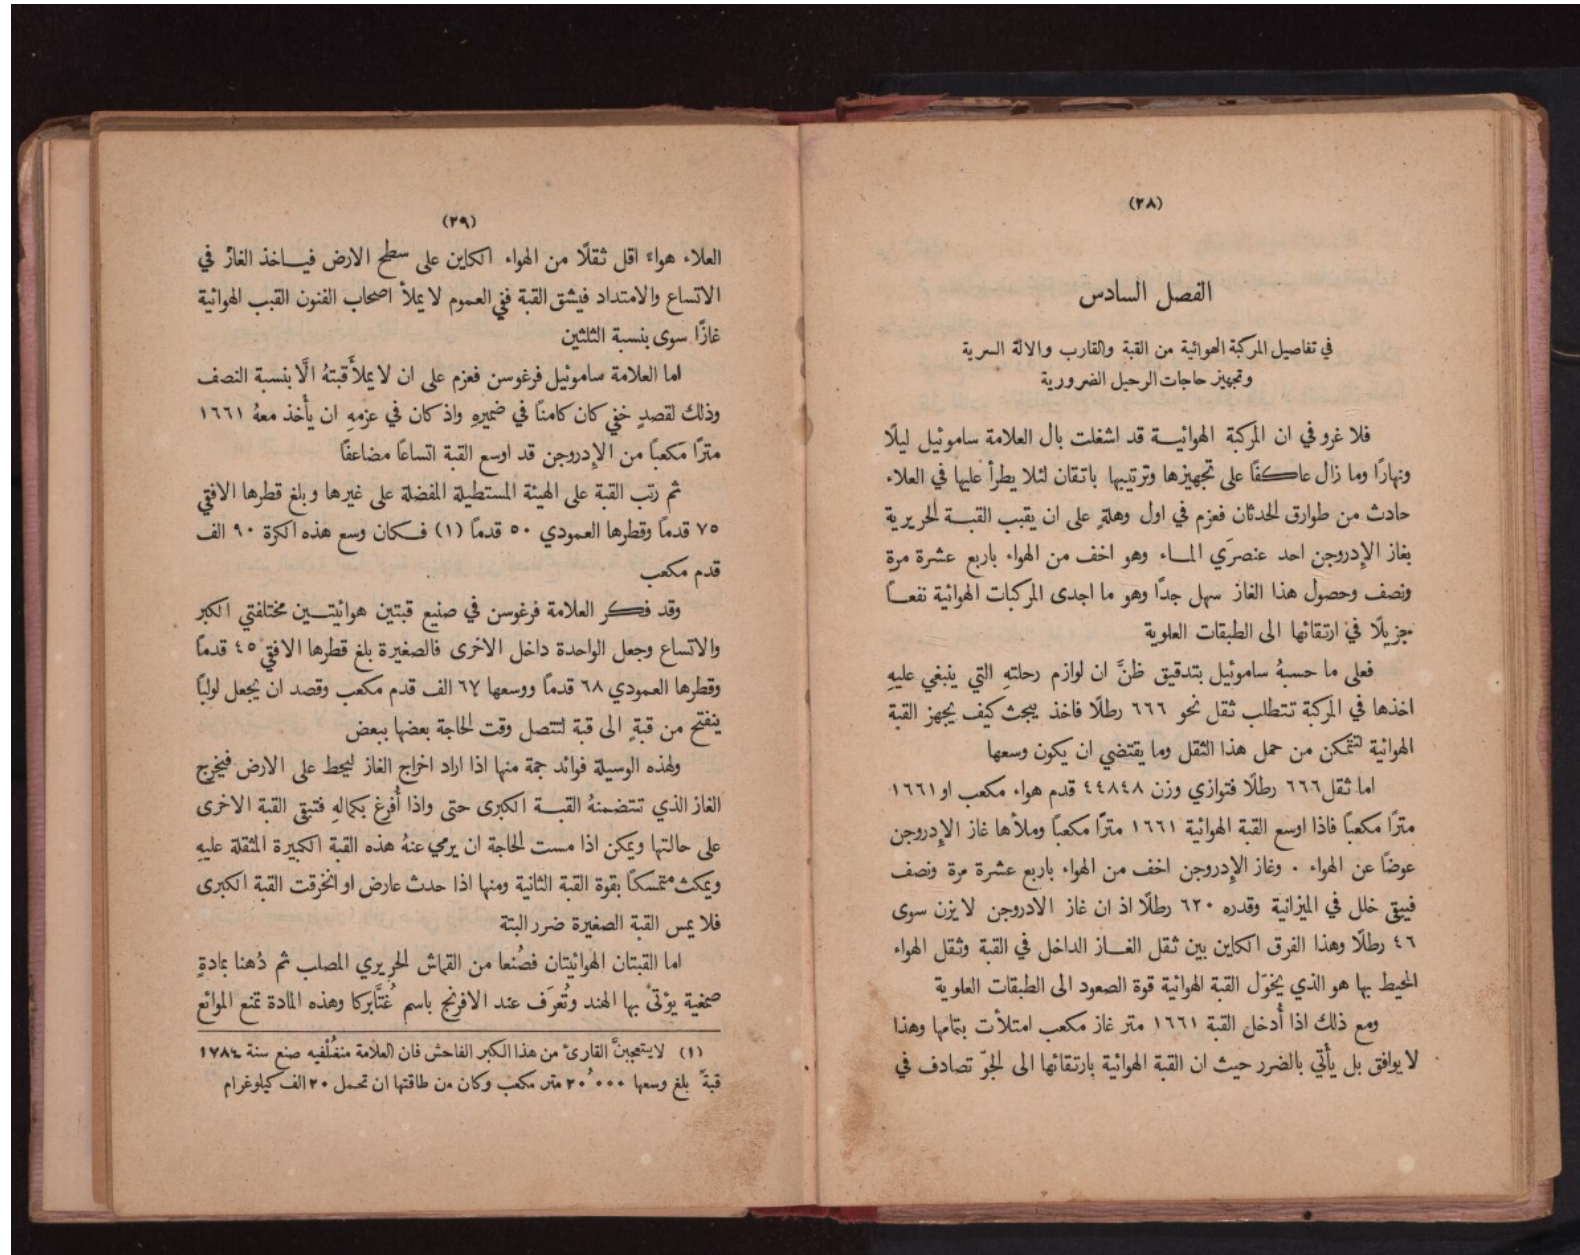 (٢٨)
الفصل السادس
في تفاصيل المركبة الهوائية من القبة والقارب والالة السرية
وتجهيز حاجات الرحيل الضرورية
فلا غرو في ان المركبة الهوائيـة قد اشغلت بال العلامة ساموئيل ليلًا
ونهارًا وما زال عاكفًا على تجهيزها وترتيبها باتقان لئلا يطرأ عليها في العلاء
حادث من طوارق الحدثان فعزم في اول وهلةٍ على ان يقبب القبـة الحريرية
بغاز الإدروجن احد عنصرَي المـاء وهو اخف من الهواء باربع عشرة مرة
ونصف وحصول هذا الغاز سهل جدًا وهو ما اجدى المركبات الهوائية نفعـًا
جزيلًا في ارتقائها الى الطبقات العلوية
فعلى ما حسبهُ ساموئيل بتدقيق ظنَّ ان لوازم رحلتهِ التي ينبغي عليهِ
اخذها في المركبة تتطلب ثقل نحو ٦٦٦ رطلًا فاخذ يبحث كيف يجهز القبة
الهوائية لتتمكن من حمل هذا الثقل وما يقتضي ان يكون وسعها
اما ثقل ٦٦٦ رطلًا فتوازي وزن ٤٤٨٤٨ قدم هواء مكعب او ١٦٦١
مترًا مكعبًا فاذا اوسع القبة الهوائية ١٦٦١ مترًا مكعبًا وملأها غاز الإدروجن
عوضًا عن الهواء ٠ وغاز الإدروجن اخف من الهواء باربع عشرة مرة ونصف
فيبقى خلل في الميزانية وقدره ٦٢٠ رطلًا اذ ان غاز الادروجن لا يزن سوى
٤٦ رطلًا وهذا الفرق الكاين بين ثقل الغـاز الداخل في القبة وثقل الهواء
المحيط بها هو الذي يخوّل القبة الهوائية قوة الصعود الى الطبقات العلوية
ومع ذلك اذا أُدخل القبة ١٦٦١ متر غاز مكعب امتلأت بتمامها وهذا
لا يوافق بل يأتي بالضرر حيث ان القبة الهوائية بارتقائها الى الجوّ تصادف في
(٢٩)
العلاء هواءً اقل ثقلًا من الهواء الكاين على سطح الارض فيـاخذ الغاز في
الاتساع والامتداد فيشق القبة ففي العموم لا يملأ اصحاب الفنون القبب الهوائية
غازًا سوى بنسبة الثلثين
اما العلامة ساموئيل فرغوسن فعزم على ان لا يملأَ قبتهُ الَّا بنسبة النصف
وذلك لقصدٍ خفي كان كامنًا في ضميرهِ واذ كان في عزمهِ ان يأْخذ معهُ ١٦٦١
مترًا مكعبًا من الإدروجن قد اوسع القبة اتساعًا مضاعفًا
ثم رتب القبة على الهيئة المستطيلة المفضلة على غيرها وبلغ قطرها الافقي
٧٥ قدمًا وقطرها العمودي ٥٠ قدمًا (١) فـكان وسع هذه الكرة ٩٠ الف
قدم مكعب
وقد فكر العلامة فرغوسن في صنيع قبتين هوائيتـين مختلفتي الكبر
والاتساع وجعل الواحدة داخل الاخرى فالصغيرة بلغ قطرها الافقي ٤٥ قدمًا
وقطرها العمودي ٦٨ قدمًا ووسعها ٦٧ الف قدم مكعب وقصد ان يجعل لولبًا
ينفتح من قبةٍ الى قبة لتتصل وقت الحاجة بعضها ببعض
ولهذه الوسيلة فوائد جمة منها اذا اراد اخراج الغاز ليحط على الارض فيخرج
الغاز الذي تتضمنهُ القبـة الكبرى حتى واذا أُفرغ بكمالهِ فتبقى القبة الاخرى
على حالتها ويمكن اذا مست الحاجة ان يرمي عنهُ هذه القبة الكبيرة المثقلة عليهِ
ويمكث متمسكًا بقوة القبة الثانية ومنها اذا حدث عارض او انخرقت القبة الكبرى
فلا يمس القبة الصغيرة ضرر البتة
اما القبتان الهوائيتان فصُنعا من القماش الحريري المصلب ثم دُهنا بمادةٍ
صمغية يؤتىٰ بها الهند وتُعرَف عند الافرنج باسم غُتَّابركا وهذه المادة تمنع الموائع
(١) لا يتعجبنَّ القارئ من هذا الكبر الفاحش فان العلامة منغُلْفيه صنع سنة ١٧٨٤
قبةً بلغ وسعها ٢٠٬٠٠٠ متر مكعب وكان من طاقتها ان تحمل ٢٠ الف كيلوغرام